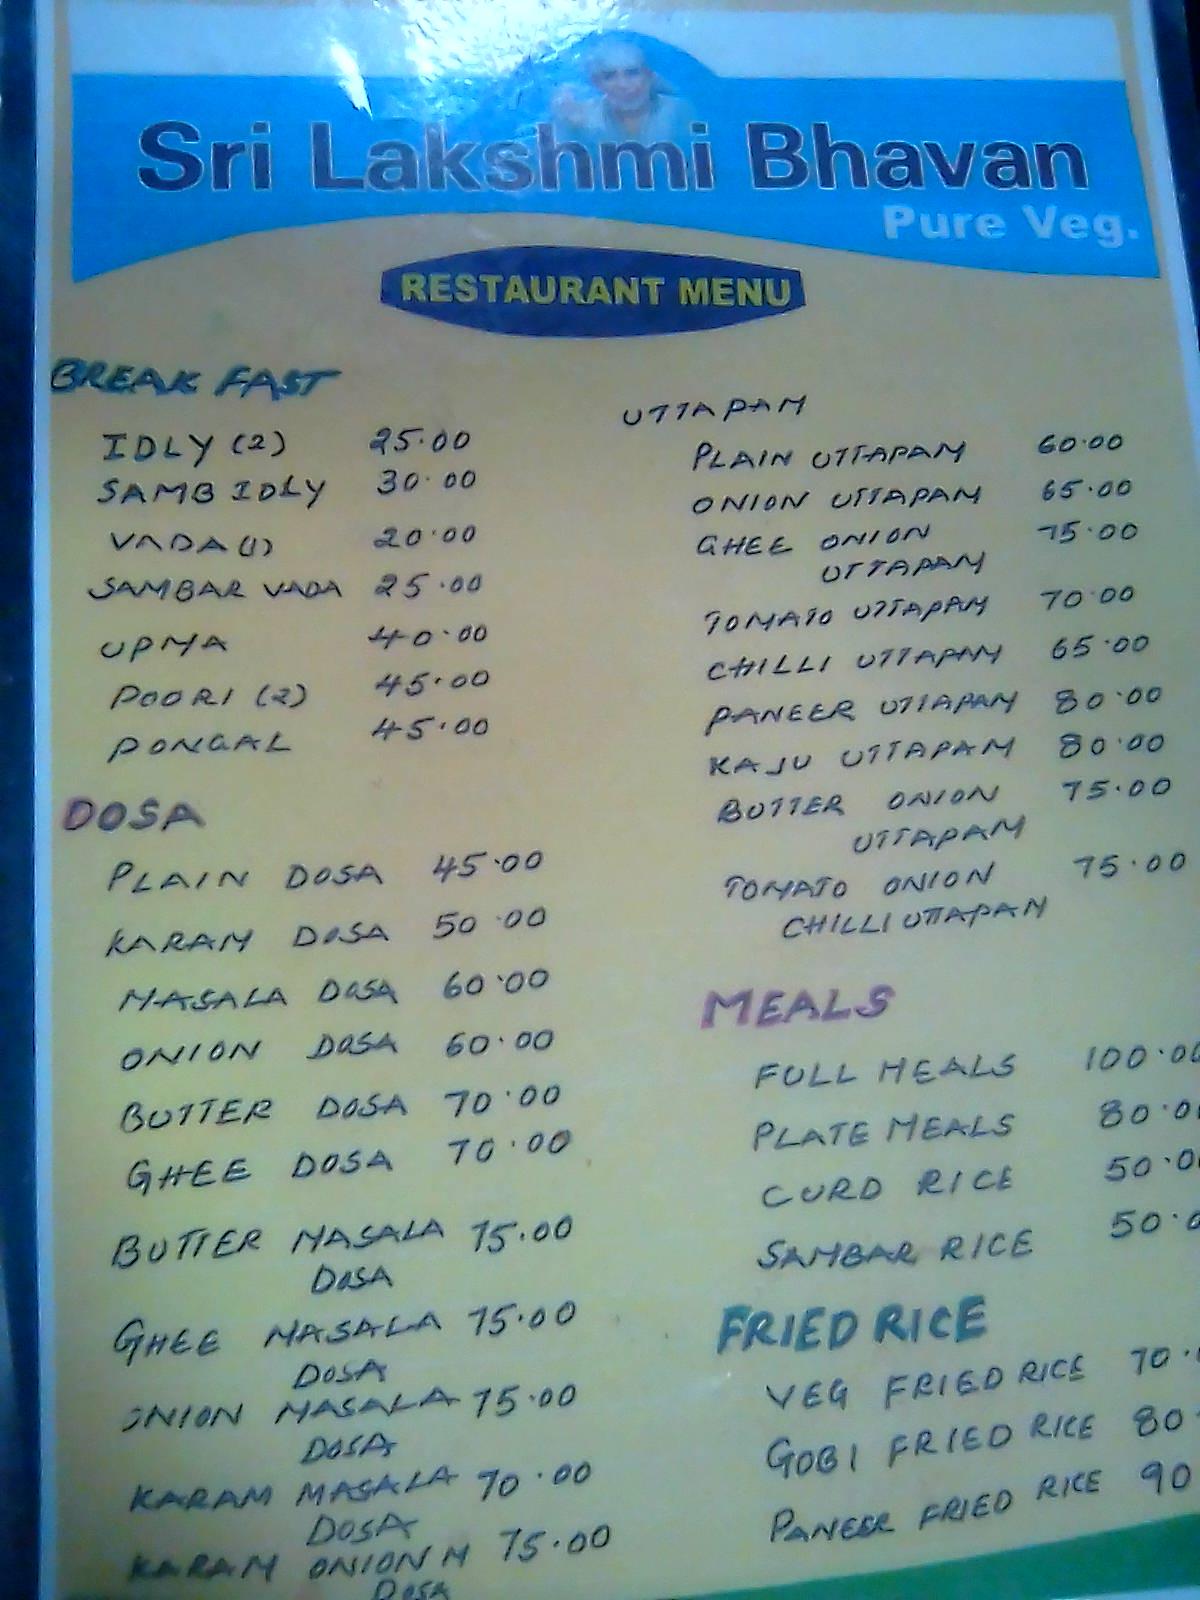 Sri Lakshmi Bhavan
Pure Veg.
RESTAURANT MENU
BREAK FAST
IDLY (2) 25.00
SAMB IDLY 30.00
VADA (1) 20.00
SAMBAR VADA 25.00
UPMA 40.00
POORI (2) 45.00
PONGAL 45.00
DOSA
PLAIN DOSA 45.00
KARAM DOSA 50.00
MASALA DOSA 60.00
ONION DOSA 60.00
BUTTER DOSA 70.00
GHEE DOSA 70.00
BUTTER MASALA 75.00
DOSA
GHEE MASALA 75.00
DOSA
ONION MASALA 75.00
DOSA
KARAM MASALA 70.00
DOSA
KARAM ONION M 75.00
DOSA
UTTAPAM
PLAIN UTTAPAM 60.00
ONION UTTAPAM 65.00
GHEE ONION 75.00
UTTAPAM
TOMATO UTTAPAM 70.00
CHILLI UTTAPAM 65.00
PANEER UTTAPAM 80.00
KAJU UTTAPAM 80.00
BUTTER ONION 75.00
UTTAPAM
TOMATO ONION 75.00
CHILLI UTTAPAM
MEALS
FULL MEALS 100.00
PLATE MEALS 80.00
CURD RICE 50.00
SAMBAR RICE 50.0
FRIED RICE
VEG FRIED RICE 70.
GOBI FRIED RICE 80.
PANEER FRIED RICE 90